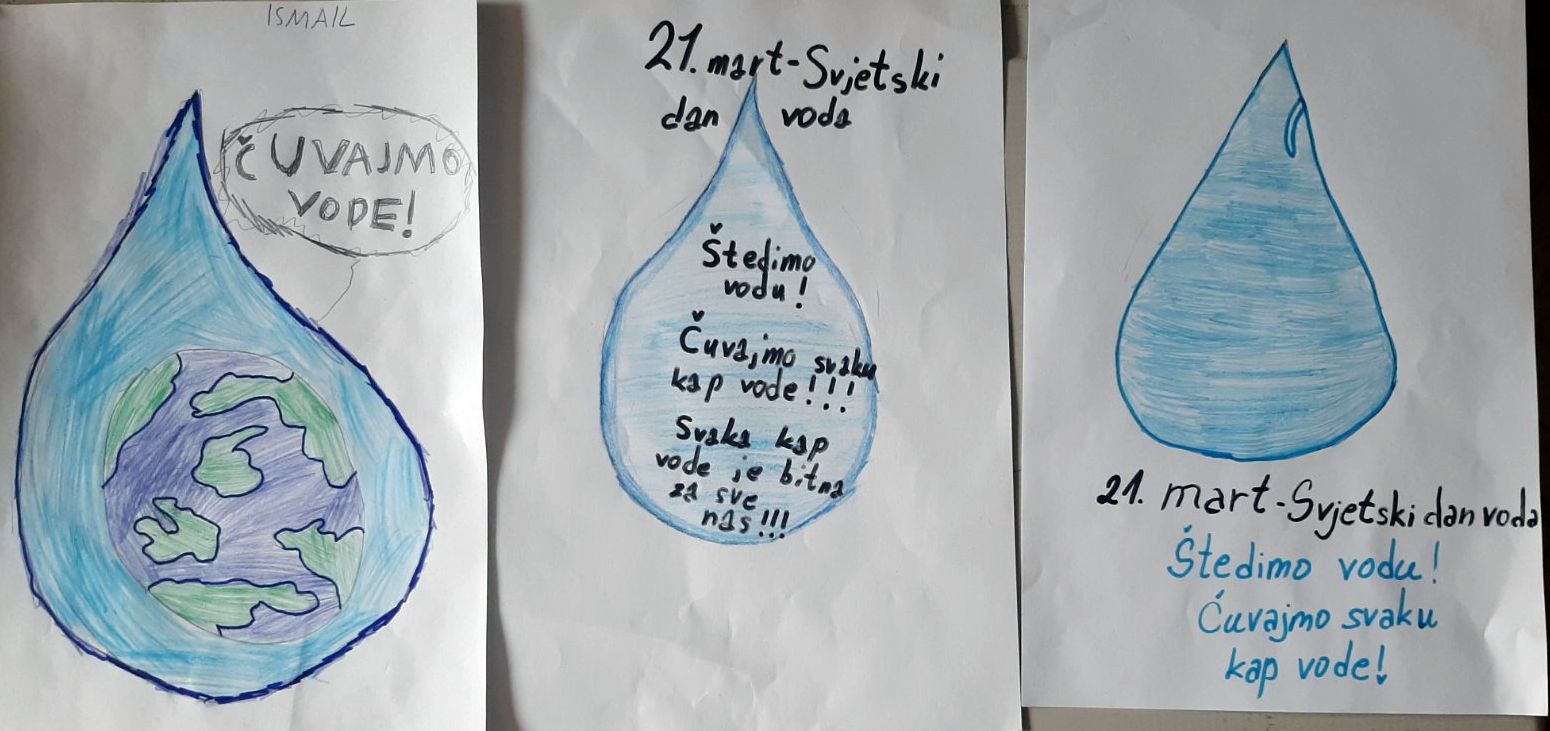 ISMAIL
ČUVAJMO
VODE!
21. mart-Svjetski
dan voda
Štedimo
vodu!
Čuvajmo svaku
kap vode!!!
Svaka kap
vode je bitna
za sve
nas!!!
21. mart-Svjetski dan voda
Štedimo vodu!
Čuvajmo svaku
kap vode!